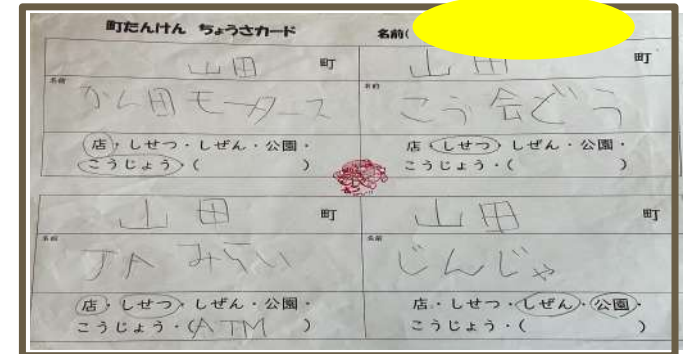 町たんけん ちょうさカード 名前(
山田 町
名前
モータース
店・しせつ・しぜん・公園・
こうじょう・( )
山田 町
名前
こう会どう
店・しせつ・しぜん・公園・
こうじょう・( )
山田 町
名前
JAみらい
店・しせつ・しぜん・公園・
こうじょう・(ATM )
山田 町
名前
じんじゃ
店・しせつ・しぜん・公園・
こうじょう・( )